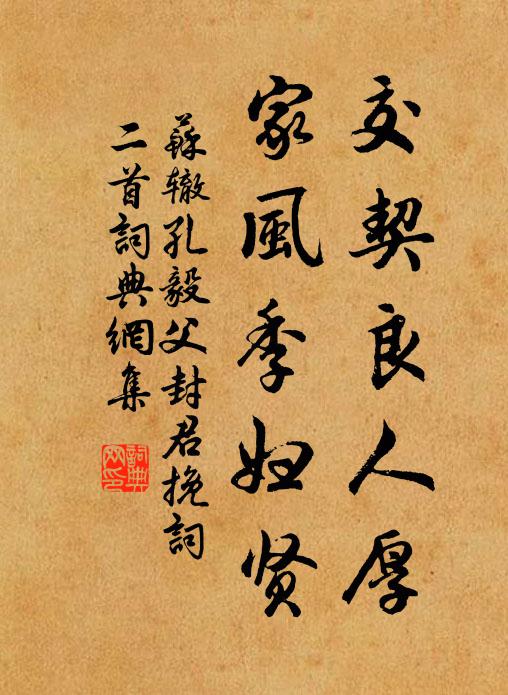 交契良人厚
家風季妇贤
蘇辙孔毅父封君挽詞
二首詞典網集
詞典
网印